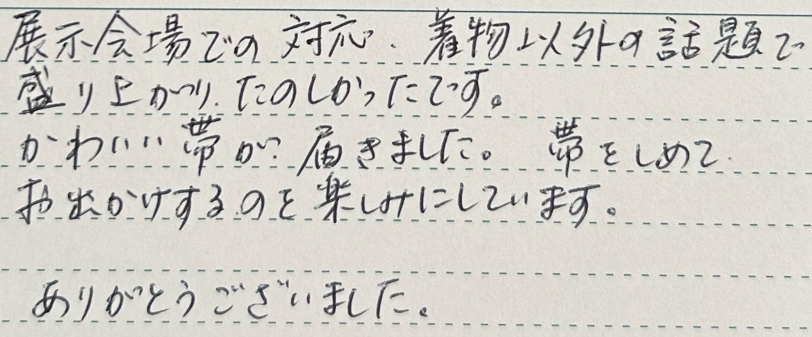 展示会場での対応、着物以外の話題で
盛り上がり、たのしかったです。
かわいい帯が届きました。 帯をしめて
お出かけするのを楽しみにしています。
ありがとうございました。